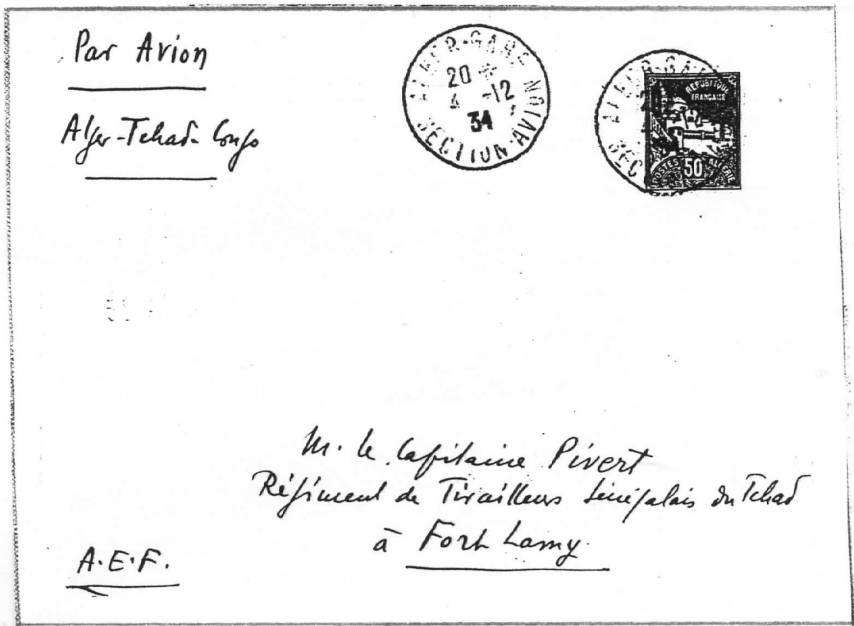 Par Avion
Alger-Tchad-Congo
ALGER-GARE
20 H
4 -12
34
SECTION-AVION
ALGER-GA
SEC
REPUBLIQUE
FRANÇAISE
POSTES 50 ALGERIE
M. le Capitaine Pivert
Régiment de Tirailleurs Sénégalais du Tchad
à Fort Lamy
A.E.F.